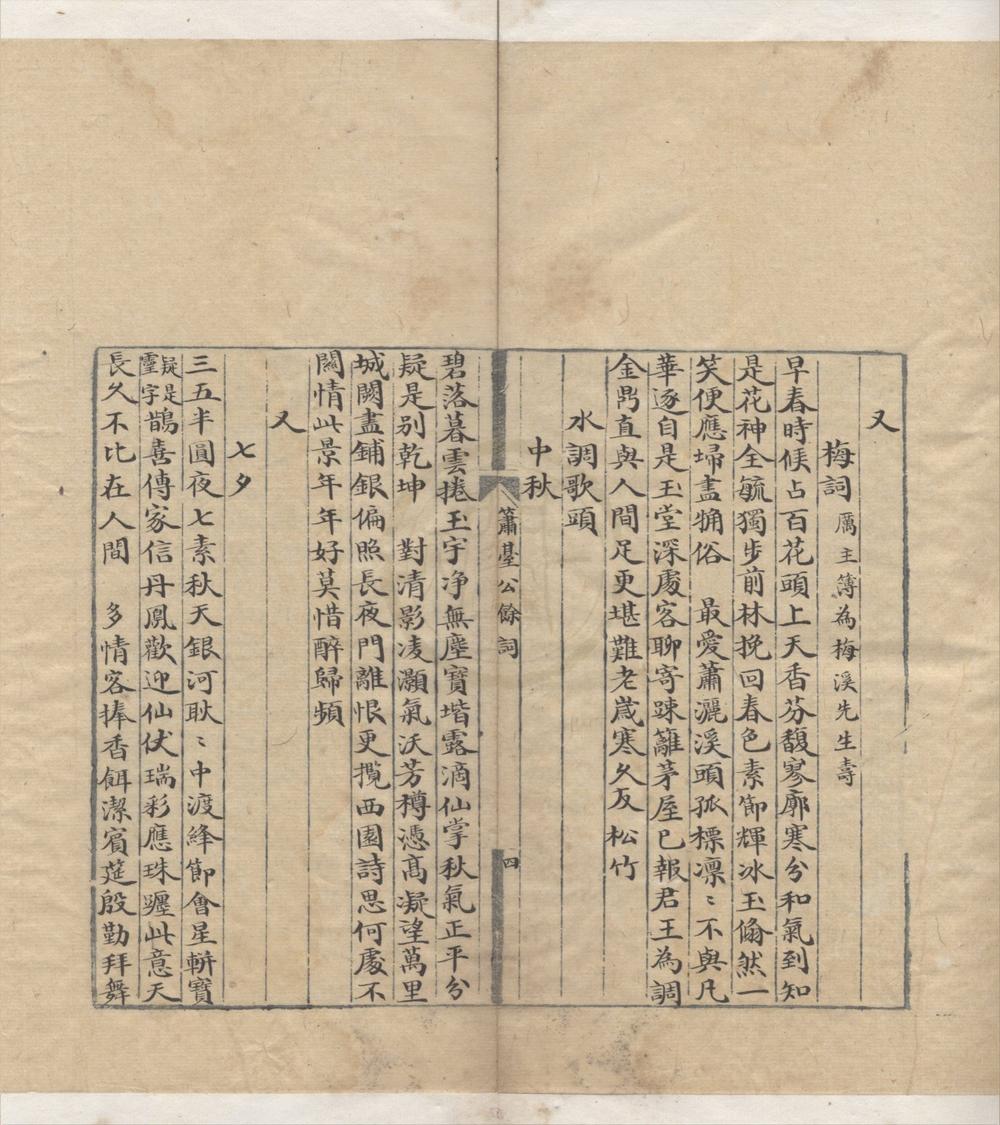 又
梅詞厲主簿為梅溪先生壽
早春時候占百花頭上天香芬馥寥廓寒分和氣到知
是花神全毓獨步前林挽回春色素節輝冰玉翛然一
笑便應埽盡犕俗　最愛蕭灑溪頭孤標凛〻不與凡
華逐自是玉堂深處客聊寄踈籬茅屋已報君王為調
金鼎直與人間足更堪難老歲寒久友松竹
水調歌頭
中秋
簫臺公餘詞
四
碧落暮雲捲玉宇净無塵寶堦露滴仙掌秋氣正平分
疑是别乾坤　對清影凌灝氣沃芳樽憑髙凝望萬里
城闕盡鋪銀偏照長夜門離恨更攪西園詩思何處不
關情此景年年好莫惜醉歸頻
又
七夕
三五半圓夜七素秋天銀河耿〻中渡絳節會星輧寳
疑是靈字鵲喜傳家信丹鳳歡迎仙伏瑞彩應珠躔此意天
長久不比在人間　多情客捧香餌潔賓莚殷勤拜舞